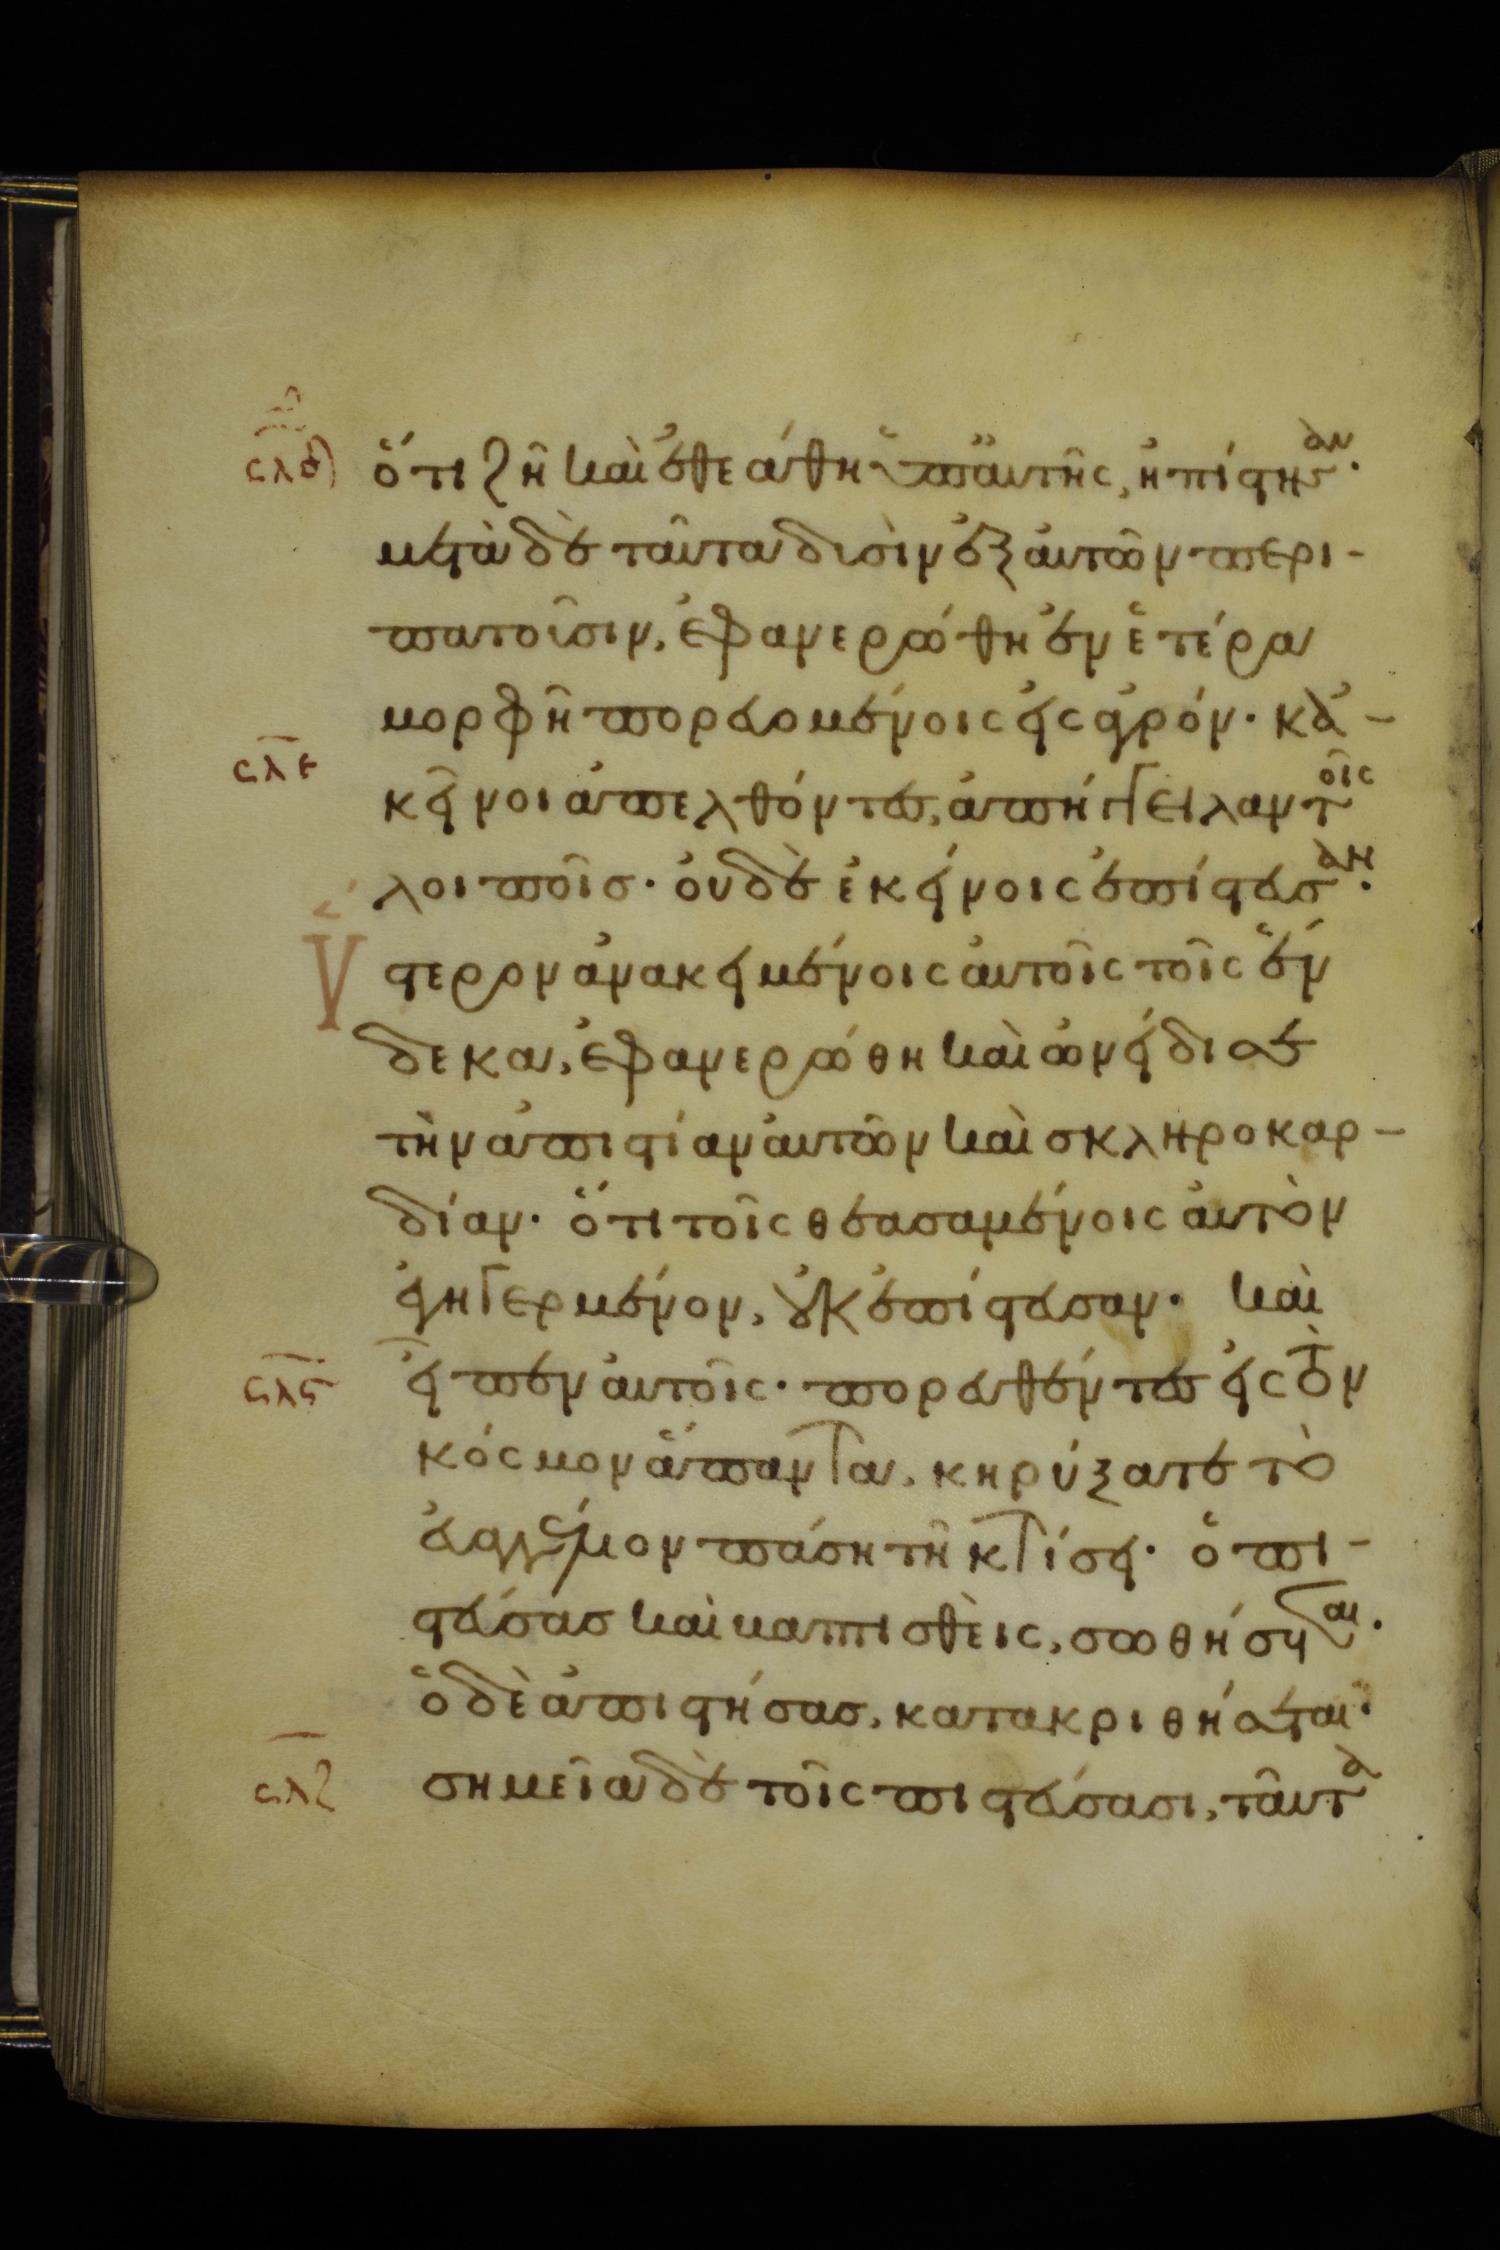 σλδ ὅτι ζῆ καὶ ἐθεάθη ὑπ' αὐτῆς, ἠπίστησαν.
μετὰ δὲ ταῦτα δυσὶν ἐξ αὐτῶν περι-
πατοῦσιν, ἐφανερώθη ἐν ἑτέρα
μορφῆ πορευομένοις εἰς ἀγρόν. κἀ-
σλε κεῖνοι ἀπελθόντες, ἀπήγγειλαν τοῖς
λοιποῖς. οὐδὲ ἐκείνοις ἐπίστευσαν.
Ὕστερον ἀνακειμένοις αὐτοῖς τοῖς ἕν
δεκα, ἐφανερώθη καὶ ὠνείδισε
τὴν ἀπιστίαν αὐτῶν καὶ σκληροκαρ-
δίαν. ὅτι τοῖς θεασαμένοις αὐτὸν
ἐγηγερμένον, οὐκ ἐπίστευσαν. καὶ
σλς εἶπεν αὐτοῖς. πορευθέντες εἰς τὸν
κόσμον ἅπαντα, κηρύξατε τὸ
εὐαγγέλιον πάση τῆ κτίσει. ὁ πι-
στεύσας καὶ βαπτισθεὶς, σωθήσεται.
ὁ δὲ ἀπιστήσας, κατακριθήσεται.
σλζ σημεῖα δὲ τοῖς πιστεύσασι, ταῦτα